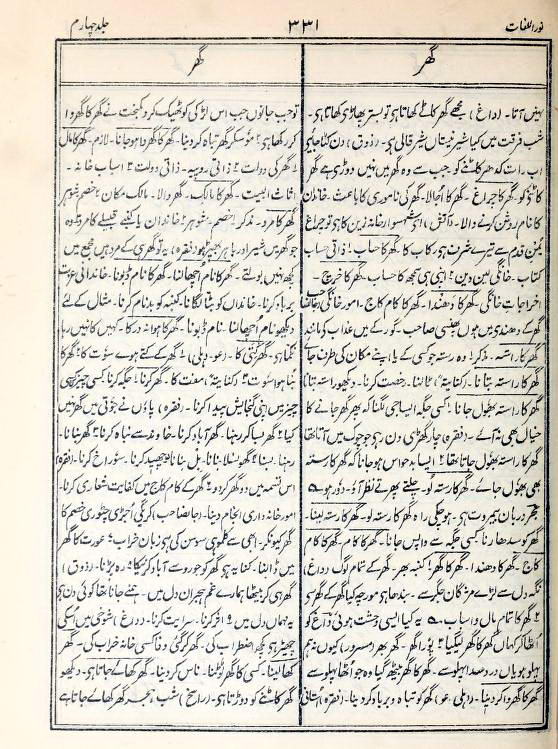 نور اللغات
۳۳۱
جلد چہارم
گھر
گھر
نہیں آتا۔ (داغ) مجھے گھر کاٹے کھاتا ہی تو بستر پھاڑی کھاتا ہی۔
شب فرقت میں کیا شیر نیستاں شیر قالی ہی۔ (ذوق) دن کٹا جائیے
اب رات کدھر کاٹنے کو جب سے وہ گھر میں نہیں دوڑی ہے گھر
کاٹنے کو۔ گھر کا چراغ۔ گھر کا اُجالا۔ گھر کی ناموری کا باعث۔ خاندان
کا نام روشن کرنے والا۔ (آتش) ای شہسوار خانہ زین کا ہی تو چراغ
یمن قدم سے تیرے شرف ہی رکاب کا۔ گھر کا حساب۔ ذاتی حساب
کتاب۔ خانگی لین دین۔ گھر کا خرچ۔
اخراجات خانگی۔ گھر کا دھندا۔ گھر کا کام کاج۔ امور خانگی
گھر کے دھندی میں ہوں پھنسی صاحب۔ گور کے میں عذاب کو مانند
گھر کا رستہ۔ مذکر۔ وہ رستہ جو کسی کے یا اپنے مکان کی طرف جائے
گھر کا راستہ بتانا۔ (کنایۃً) ٹالنا۔ رخصت کرنا۔ دیکھو رستہ بتانا
گھر کا راستہ بھول جانا۔ کسی جگہ ایسا جی لگنا کہ پھر گھر جانے کا
خیال بھی نہ آئے۔ (فقرہ) چار گھڑی دن رہی جو چوک میں آتا تھا
گھر کا راستہ بھول جاتا تھا۔ ایسا بدحواس ہو جانا کہ گھر کا رستہ
بھی بھول جائے۔ گھر کا رستہ لو۔ چلتے پھرتے نظر آؤ۔ دور ہو
ہی بےمروت ہی۔ ہو چکی راہ گھر کا رستہ لو۔ گھر کا رستہ لینا۔
گھر کو سدھارنا۔ کسی جگہ سے واپس جانا۔ گھر کا کام۔ گھر کا کام
کاج۔ گھر کا دھندا۔ گھر کا گھر۔ کنبہ بھر۔ گھر کے تمام لوگ (داغ)
نگہ دل سے لڑے مژگاں جگر سے۔
گھر کا تمام مال و اسباب
اُٹھا کر کہاں گھر کا گھر لیگیا۔ پورا گھر۔ گھر بھر (سرور) کیوں نہ ہم
پہلو ہو یاں درد صدا پہلو سے۔ گھر کا گھر بیٹھ گیا وہ جو اُٹھا پہلو سے
گھر کا گھروا کر دینا۔ (دہلی۔ عو) گھر کو تباہ و برباد کر دینا۔ (فقرہ)
تو جب جانوں جب اس لڑکی کو ٹھیک کر دو کمبخت نے گھر کا گھروا
کر رکھا ہی۔ گھر تباہ کر دینا۔ گھر کا گھروا ہو جانا۔ لازم۔ گھر کا مال
گھر کی دولت۔ ذاتی روپیہ۔ ذاتی دولت۔ اسباب خانہ۔
اثاث البیت۔ گھر کا مالک۔ گھر والا۔ مالک مکان۔ خصم شوہر
گھر کا مرد۔ مذکر۔ خصم۔ شوہر۔ خاندان یا کنبے قبیلے کا مرد
جو گھر میں شیر اور باہر بھیڑ ہو (فقرہ) یہ تو گھری کے مرد ہیں مجمع میں
کچھ نہیں بولتے۔ گھر کا نام اُچھالنا۔ گھر کا نام ڈبونا۔ خاندانی عزت
برباد کرنا۔ خاندان کو بٹا لگانا۔ کنبہ کو بدنام کرنا۔ مثال کے لئے
دیکھو نام اُچھالنا۔ نام ڈبونا۔ گھر کا ہوا نہ در کا۔ کہیں کا نہیں رہا
نکما ہی۔ (عو۔ دہلی) گھر کے کتے ہوے سوت کا۔ گھر کا
بنا ہوا سوت۔ (کنایۃً) مفت کا۔ گھر کرنا۔ جگہ کرنا۔ کسی چیز کا کسی
چیز میں اپنی گنجایش پیدا کرنا۔ (فقرہ) پاؤں نے جوتی میں گھر نہیں
کیا۔ گھر بسا کر رہنا۔ گھر آباد کرنا۔ خاوند سے نباہ کرنا۔ گھر بنانا۔
رہنا۔ بسنا۔ گھونسلا بنانا۔ بل بنانا۔ چھید کرنا۔ سوراخ کرنا۔ (فقرہ)
اس تسمہ میں دو گھر کر دو۔ گھر کے کام کاج میں کفایت شعاری کرنا۔
امور خانہ داری انجام دینا۔ (جانصاحب) کر گئی اُجڑی چٹوری خصم کا
گھر کیونکر۔ سوسن کی ہی زبان خراب۔ عورت کا گھر
میں ڈالنا۔ کنایہ ہی گھر کو جورو سے آباد کرنے کا۔ رہ پڑنا۔ (ذوق)
گھر ہی کر بیٹھا ہمارے غم ہجراں دل میں۔ ہم نے جانا تھا کہ کوئی دن
یہ مہماں دل میں۔ اثر کرنا۔ سرایت کرنا۔ (داغ) شوخی میں اُسکی
چھیڑ ہی کچھ اضطراب کی۔ گھر کر گئی وفا کسی خانہ خراب کی۔ گھر
گھالنا۔ کسی کا گھر لوٹنا۔ ناس کر دینا۔ گھر کھائے جاتا ہی۔ دیکھو
گھر کاٹنے کو دوڑتا ہی۔ (راسخ) شب ہجر گھر کھائے جاتا ہے